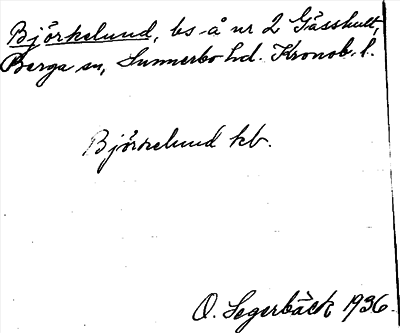 Björkelund, ls å nr 2 Gässhult,
Berga sn, Sunnerbo hd. Kronob. l.
Björkelund kb.
O. Segerbäck 1936.